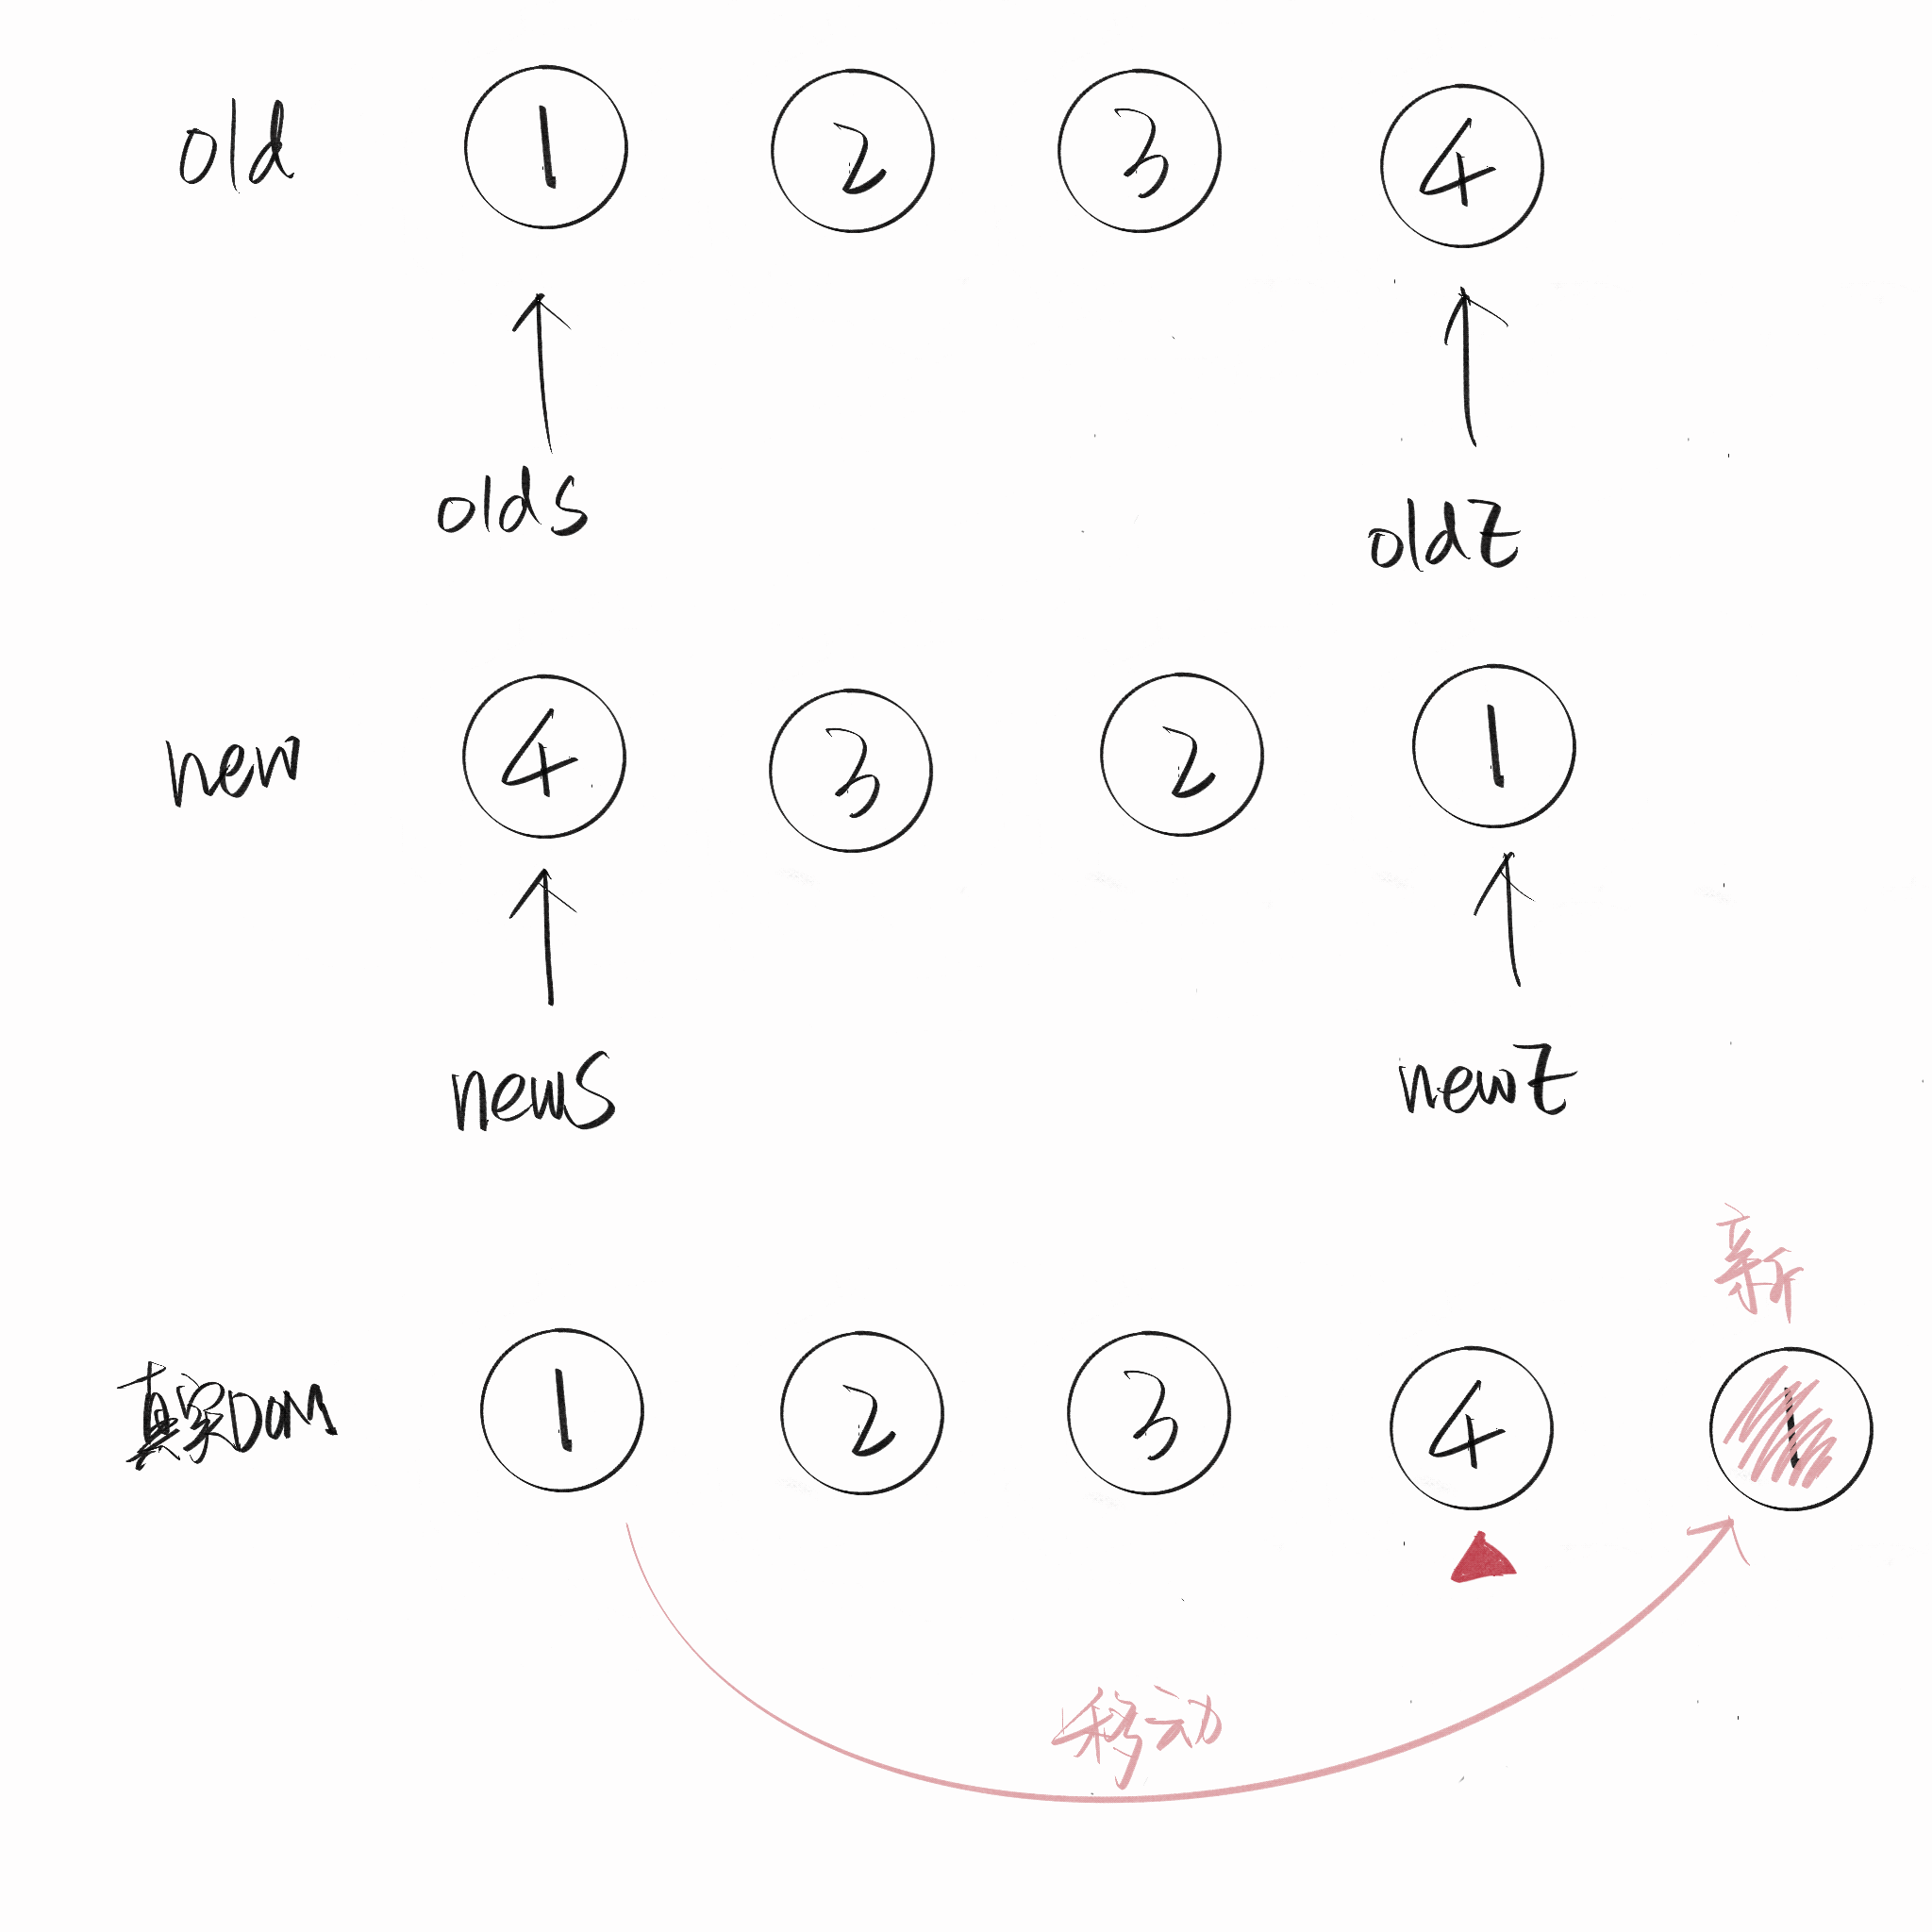 old 1 2 3 4
oldS oldE
new 4 3 2 1
newS newE
新
真实DOM 1 2 3 4 1
移动